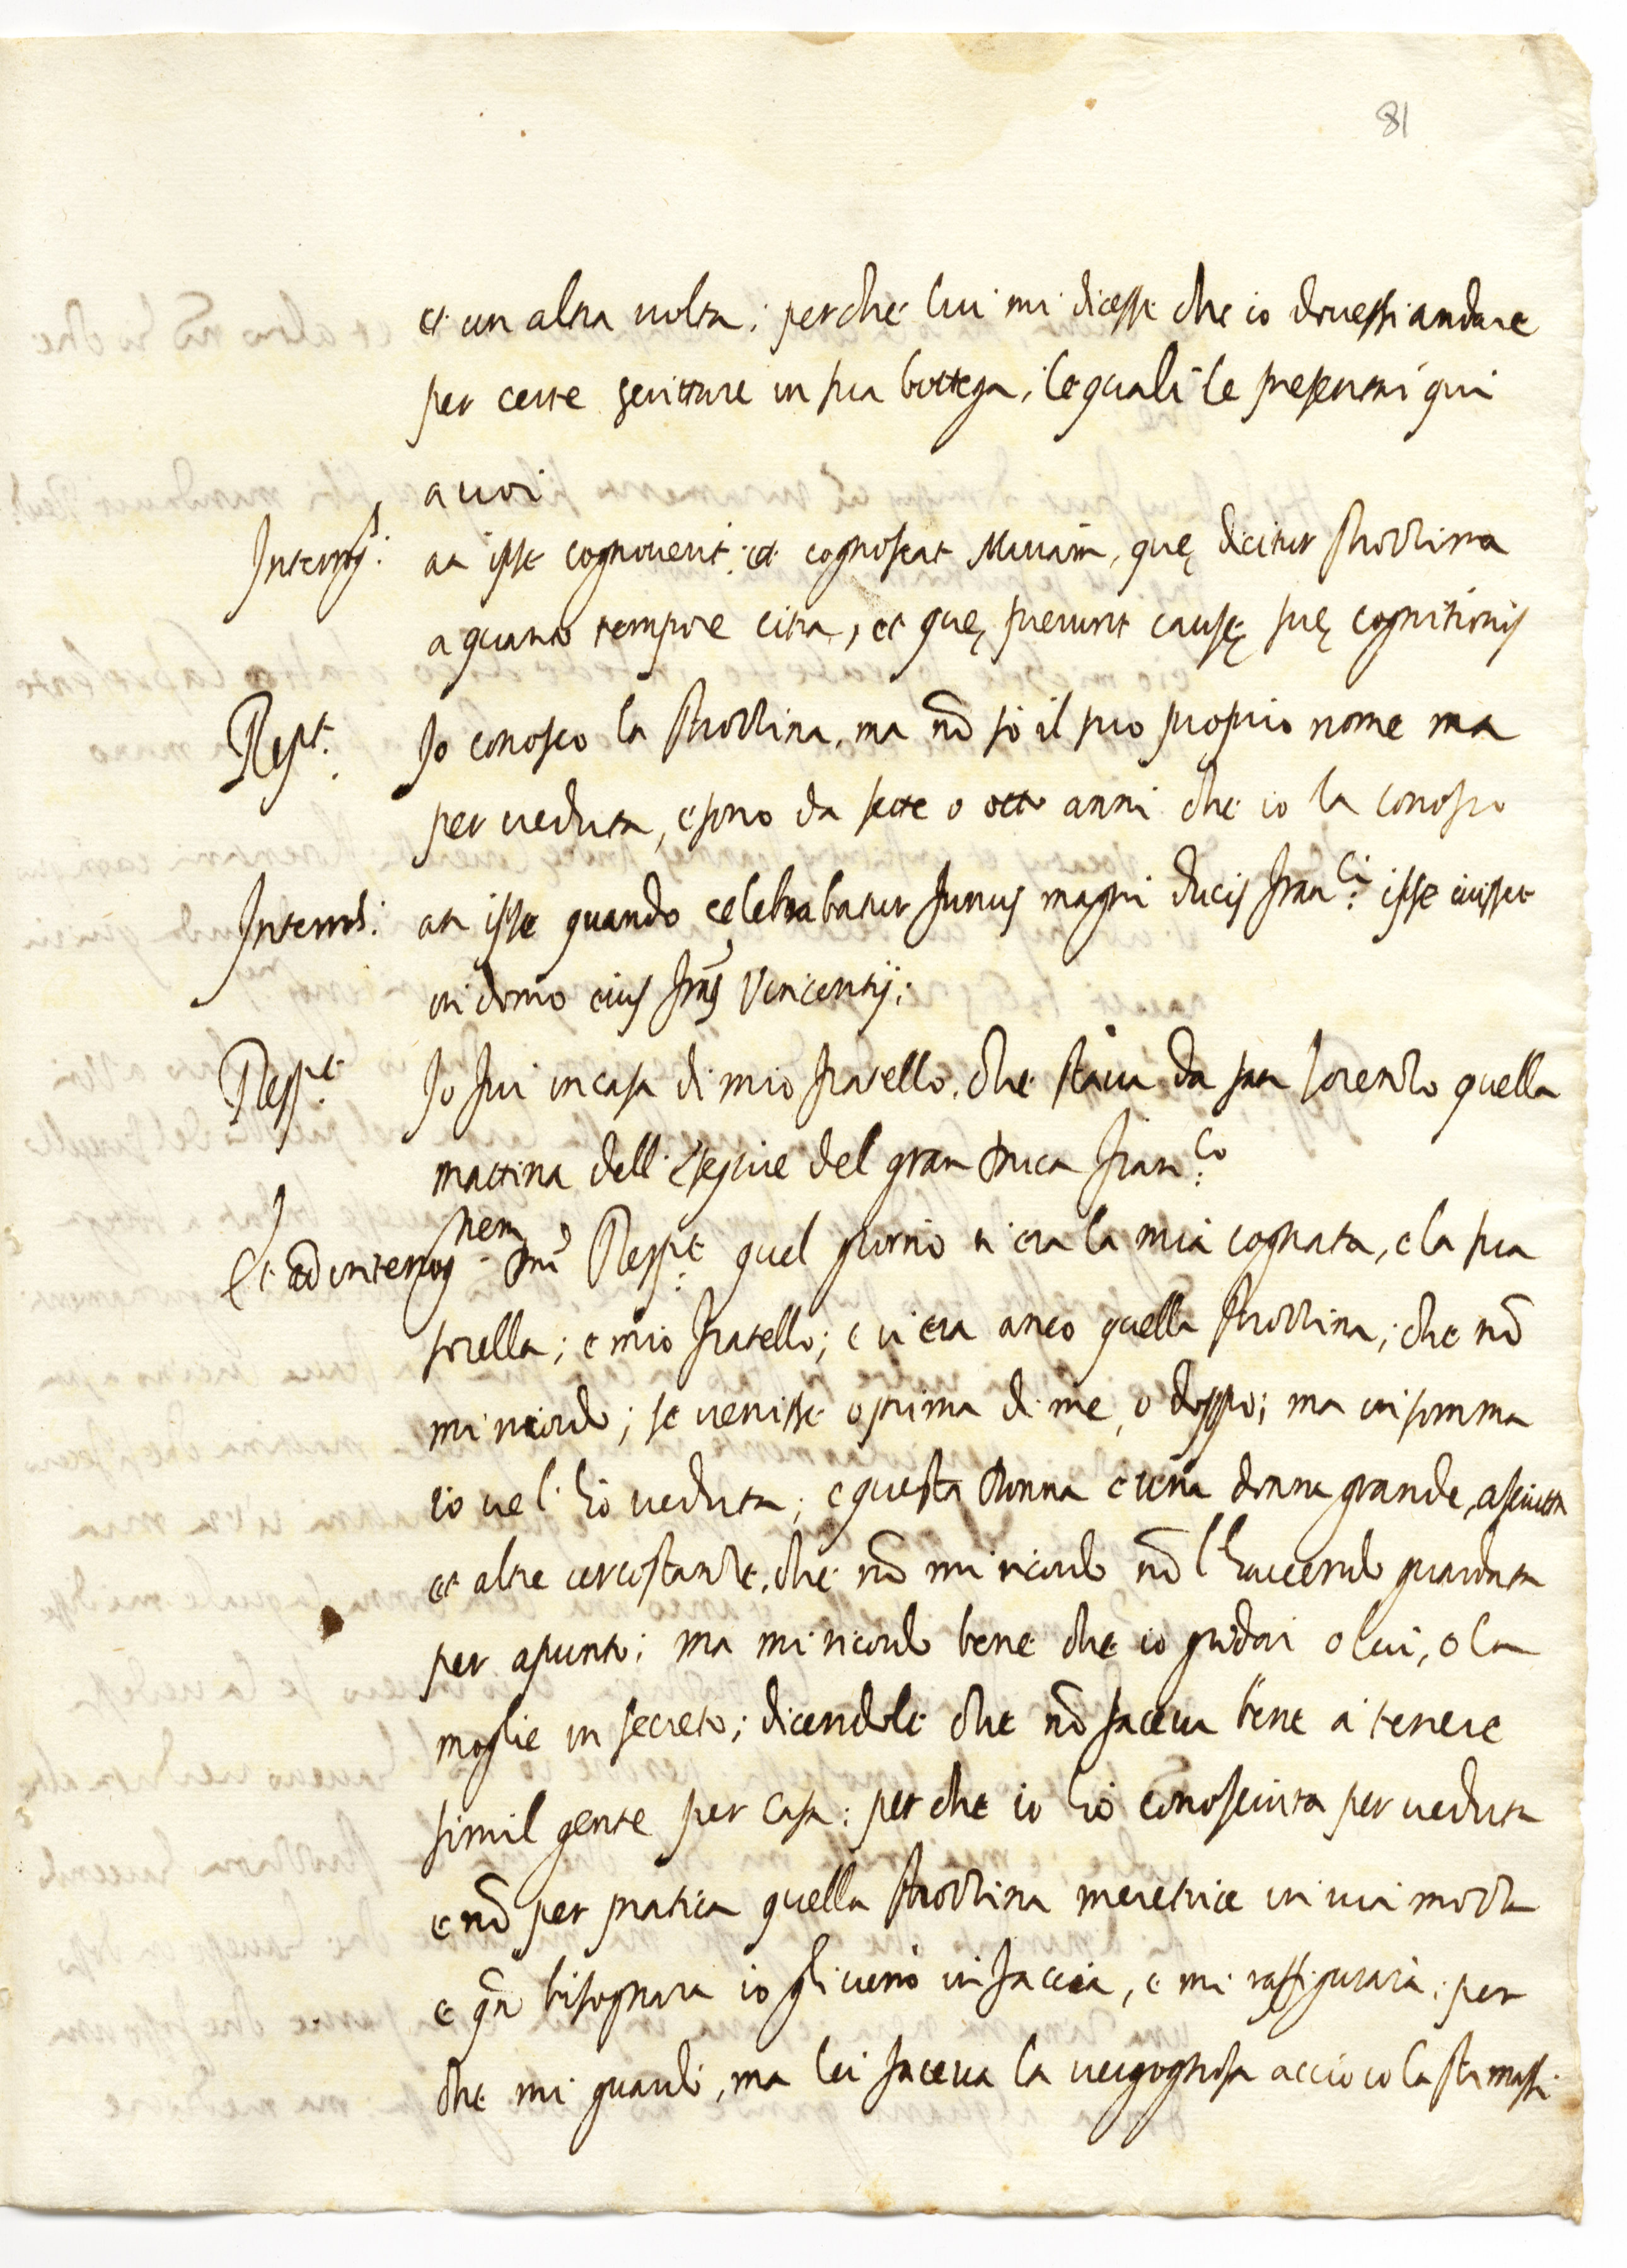 81
et un altra volta; perche lui mi dicesse che io dovessi andare
per certe scritture in sua bottega, le quali le presentai qui
a voi
Interrog.s an ipse cognoverit et cognoscat Mariam, quę dicitur Strozzina
a quanto tempore citra, et quę fuerunt causę suę cognitionis
Resp.t Io conosco la Strozzina, ma nō so il suo proprio nome ma
per veduta, e sono da sette o otto anni che io la conosco
Interrog.s an ipse quando celebrabatur funus magni ducis Fran.ci ipse ivisset
in domo eius fr̄is Vincentij;
Resp.t Io fui in casa di mio fratello, che stava da san Lorenzo quella
mattina dell' Esequie del gran Duca Fran.co
Et ad interrog.nem Dn̄i Resp.t quel giorno vi era la mia cognata, e la sua
sorella; e mio fratello; e vi era anco quella Strozzina; che nō
mi ricordo; se venisse o prima di me, o doppo; ma in somma
io ve l' hò veduta; e questa Donna è una donna grande, asciutta
et altre circostanze, che nō mi ricordo nō l' havendo guardata
per apunto; ma mi ricordo bene che io gridai o lui, o la
moglie in secreto; dicendole che nō faceva bene a tenere
simil gente per casa: per che io hò conosciuta per veduta
e nō per pratica quella Strozzina meretrice in via mozza
e qn̄ bisognara io gli verrò in faccia, e mi raffigurarà; per
che mi guardò, ma lei faceva la vergognosa acciò io la stimassi